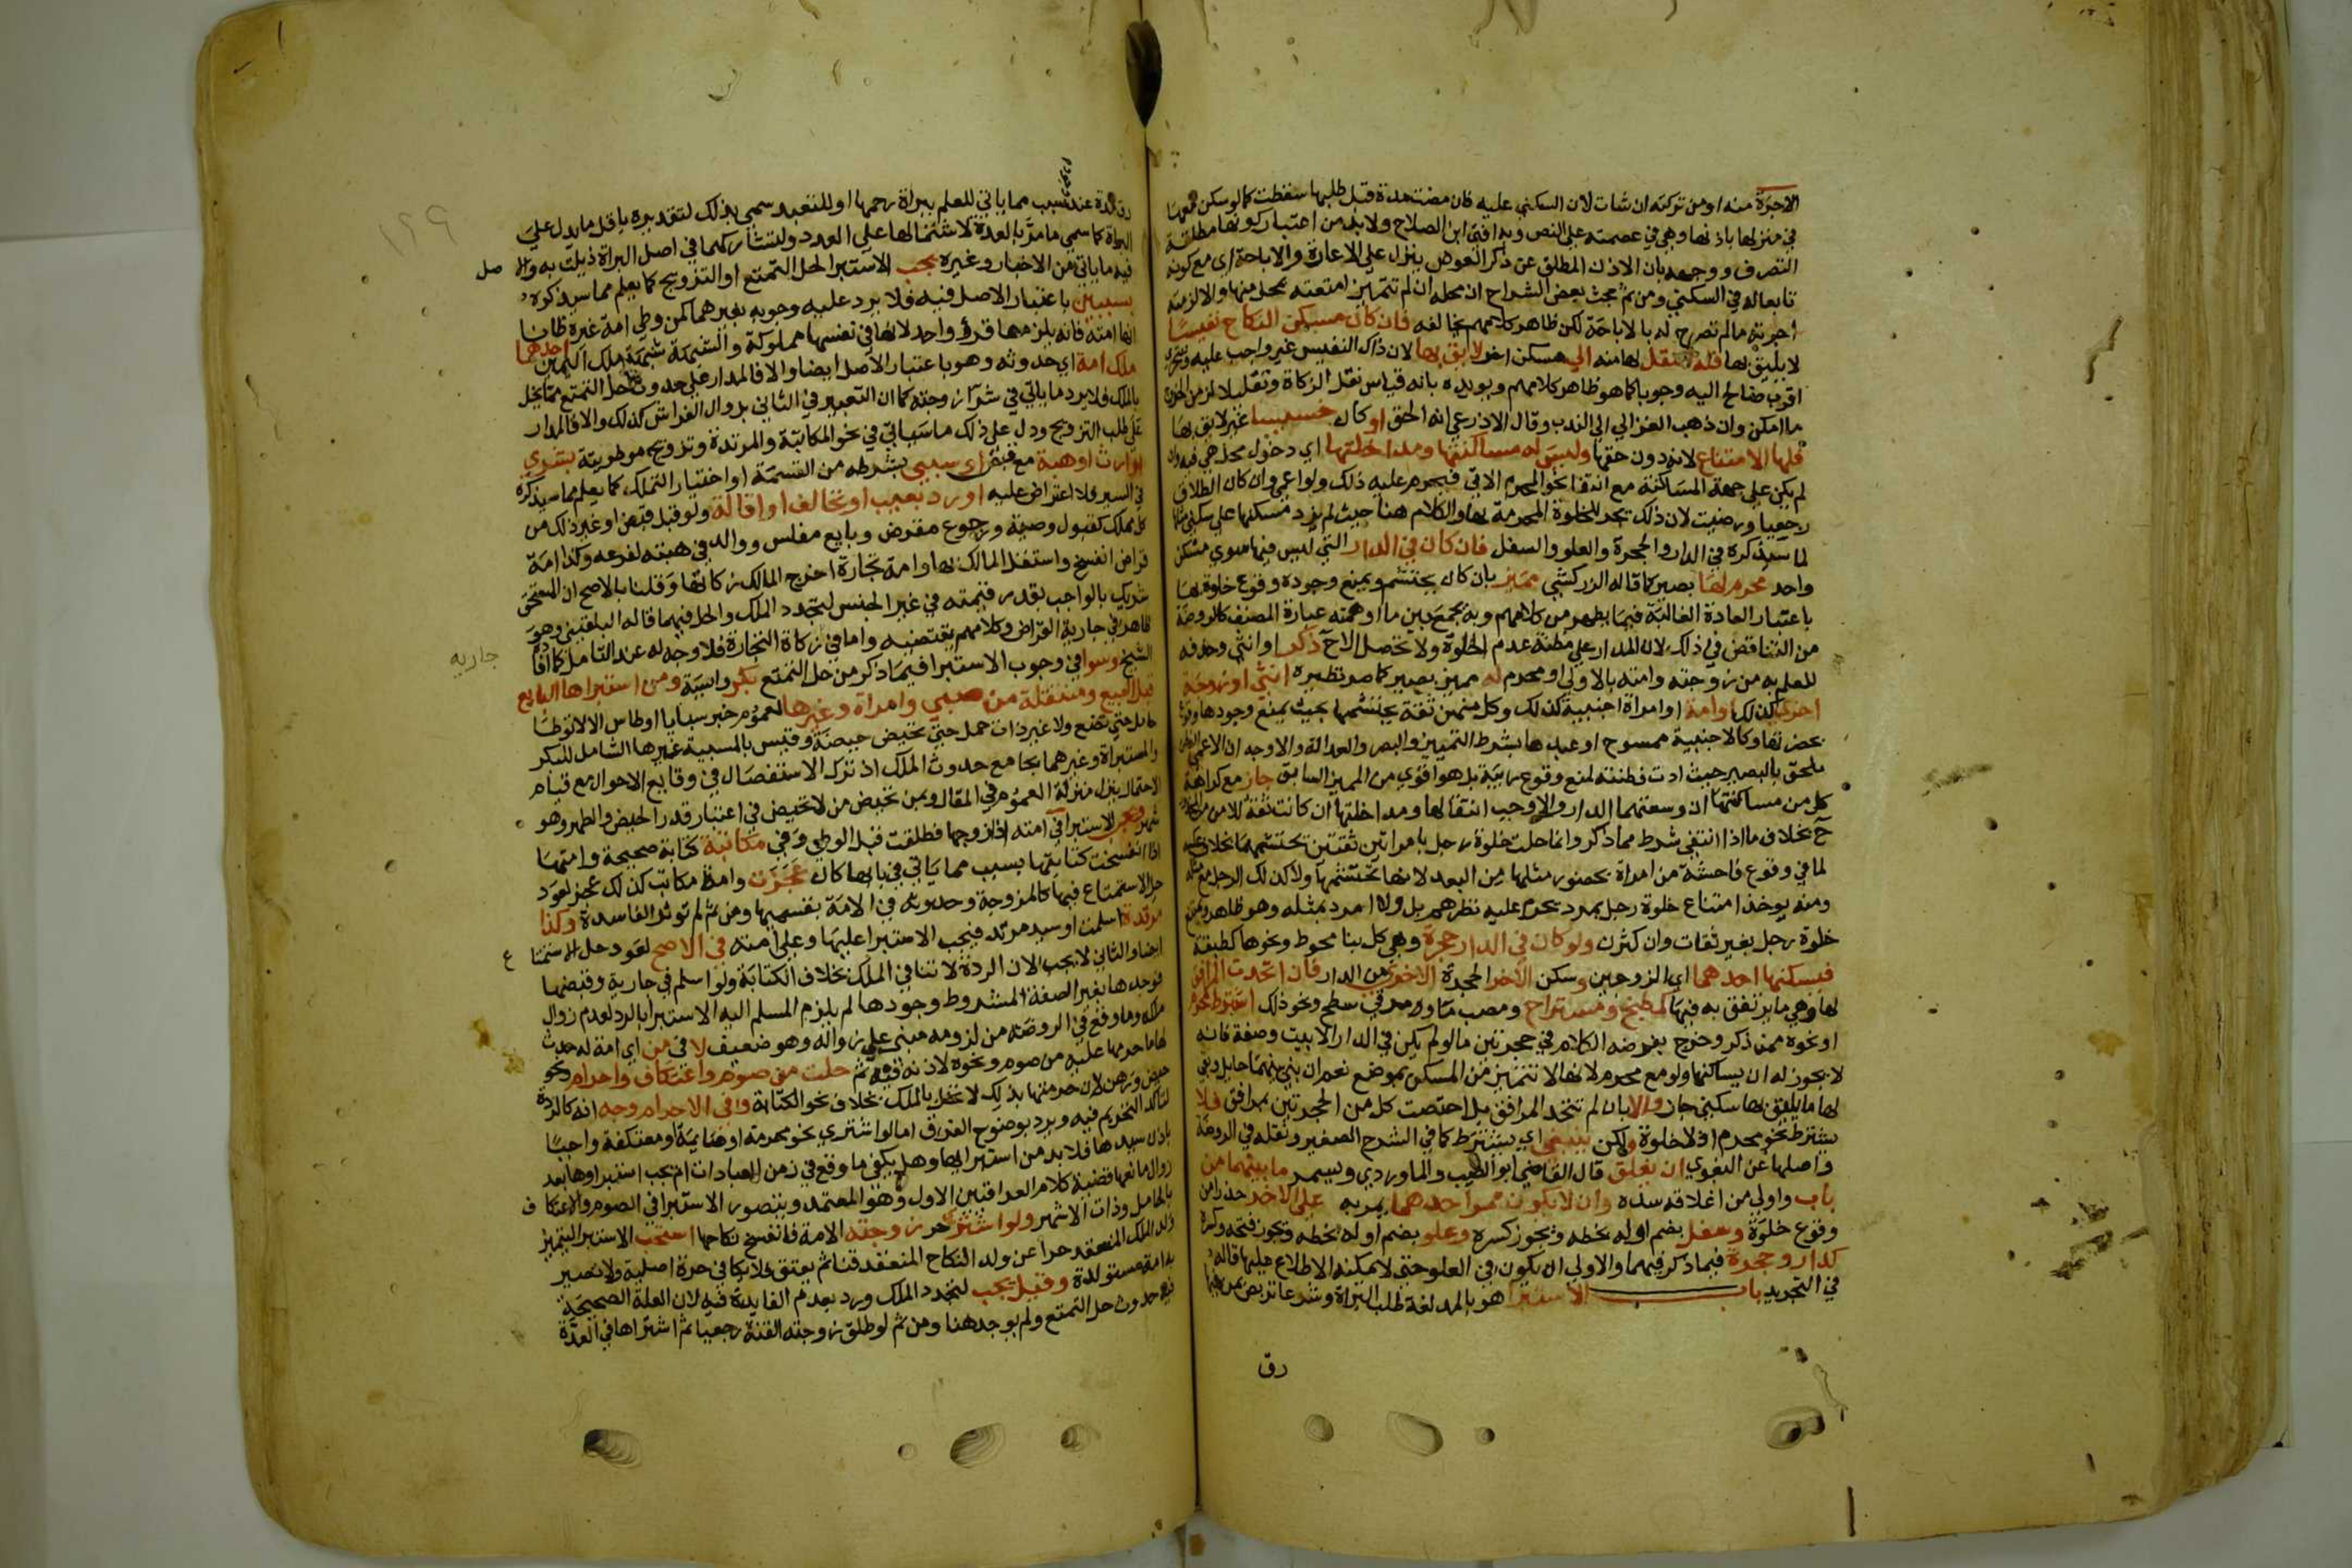 الاجرة منه او من تركته ان شات لان السكني عليه فان مضت مدة قبل طلبها سقطت كما لو سكن معها
في منزلها باذنها وهي في عصمته علي النص وبه افتي ابن الصلاح ولا بد من اعتبار كونها مطلقة
التصرف ووجهه بان الاذن المطلق عن ذكر العوض ينزل علي الاعارة والاباحة اي مع كونه
تابعا له في السكني ومن ثم بحث بعض الشراح ان محله ان لم تتميز امتعته بمحل منها والا لزمته
اجرته ما لم تصرح له بالاباحة لكن ظاهر كلامهم يخالفه فان كان مسكن النكاح نفيسا
لا يليق بها فله النقل لها منه الي مسكن اخر لايق بها لان ذاك النفيس غير واجب عليه
اقرب صالح اليه وجوبا كما هو ظاهر كلامهم ويويده بانه قياس نقل الزكاة وتقليلا لزمن الخروج
ما امكن وان ذهب الغزالي الي الندب وقال الاذرعي انه الحق او كان خسيسا غير لايق بها
فلها الامتناع لانه دون حقها وليس له مساكنتها ومداخلتها اي دخول محل هي فيه وان
لم يكن علي جهة المساكنة مع انتفا نحو المحرم الاتي فيحرم عليه ذلك ولو اعمي وان كان الطلاق
رجعيا ورضيت لان ذلك يجر للخلوة المحرمة بها والكلام هنا حيث لم يزد مسكنها علي سكني مثلها
لما سيذكره في الدار والحجرة والعلو والسفل فان كان في الدار التي ليس فيها سوي مسكن
واحد محرم لها بصير كما قاله الزركشي مميز بان كان يحتشم ويمنع وجوده وقوع خلوة بها
باعتبار العادة الغالبة فيما يظهر من كلامهم وبه يجمع بين ما اوهمته عبارة المصنف كالروضة
من التناقض في ذلك لان المدار علي مظنة عدم الخلوة ولا تحصل الا ح ذكر او انثي وحذفه
للعلم به من زوجته وامته بالاولي او محرم له مميز بصير كما مر نظيره انثي او زوجة
اخري كذلك او امة او امراة اجنبية كذلك وكل منهن ثقة يحتشمها بحيث يمنع وجودها
بحضرتها وكالاجنبية ممسوح او عبدها بشرط التمييز والبصر والعدالة والاوجه ان الاعمي
يلحق بالبصير حيث ادت فطنته لمنع وقوع ريبة بل هو اقوي من المميز السابق جاز مع كراهة
كل من مساكنتها ان وسعتهما الدار والا وجب انتقالها ومداخلتها ان كانت ثقة للامن من المحذور
ح بخلاف ما اذا انتفي شرط مما ذكر وانما حلت خلوة رجل بامراتين ثقتين تحتشمهما بخلاف عكسه
لما في وقوع فاحشة من امراة بحضور مثلها من البعد لانها تحتشمها ولا كذلك الرجل مع مثله
ومنه يوخذ امتناع خلوة رجل بمرد يحرم عليه نظرهم بل ولا امرد بمثله وهو ظاهر ويمتنع
خلوة رجل بغير ثقات وان كثرن ولو كان في الدار حجرة وهي كل بنا محوط ونحوها كطبقة
فسكنها احدهما اي الزوجين وسكن الاخر الحجرة الاخري من الدار فان اتحدت المرافق
لها وهي ما يرتفق به فيها كمطبخ ومستراح ومصب ما ومرقي سطح ونحو ذلك اشترط محرم
او نحوه ممن ذكر وخرج بفرضه الكلام في حجرتين ما لو لم يكن في الدار الا بيت وصفة فانه
لا يجوز له ان يساكنها ولو مع محرم لانها لا تتميز من المسكن بموضع نعم ان بني بينهما حايل وبقي
لها ما يليق بها سكني جاز والا بان لم تتحد المرافق بل اختصت كل من الحجرتين بمرافق فلا
يشترط نحو محرم اذ لا خلوة ولكن ينبغي اي يشترط كما في الشرح الصغير ونقله في الروضة
واصلها عن البغوي ان يغلق قال القاضي ابو الطيب والماوردي ويسمر ما بينهما من
باب واولي من اغلاقه سده وان لا يكون ممر احدهما يمر به علي الاخر حذرا من
وقوع خلوة وسفل بضم اوله بخطه ويجوز كسره وعلو بضم اوله بخطه ويجوز فتحه وكسره
كدار وحجرة فيما ذكر فيهما والاولي ان يكون في العلو حتي لا يمكنه الاطلاع عليها قاله
في التجريد باب الاستبرا هو بالمد لغة طلب البراة وشرعا تربص بمن فيها
رق
رق مدة عند سبب مما ياتي للعلم ببراة رحمها او للتعبد سمي بذلك لتقديره باقل ما يدل علي
البراة كما سمي ما مر بالعدة لاشتمالها علي العدد ولتشاركهما في اصل البراة ذيلت به والا صل
فيه ما ياتي من الاخبار وغيره يجب الاستبرا لحل التمتع او التزويج كما يعلم مما سيذكره
بسببين باعتبار الاصل فيه فلا يرد عليه وجوبه بغيرهما كمن وطي امة غيره ظانا
انها امته فانه يلزمها قرؤ واحد لانها في نفسها مملوكة والشبهة شبهة ملك اليمين احدهما
ملك امة اي حدوثه وهو باعتبار الاصل ايضا والا فالمدار علي حدوث حل التمتع مما يخل
بالملك فلا يرد ما ياتي في شرا زوجته كما ان التعبير في الثاني بزوال الفراش كذلك والا فالمدار
علي طلب التزويج ودل علي ذلك ما سياتي في نحو المكاتبة والمرتدة وتزويج موطوته بشري
او ارث او هبة مع قبض او سبي بشرطه من القسمة او اختيار التملك كما يعلم مما سيذكره
في السير فلا اعتراض عليه او رد بعيب او تخالف او اقالة ولو قبل قبض او غير ذلك من
كل مملك كقبول وصية ورجوع مقرض وبايع مفلس ووالد في هبته لفرعه وكذا امة
قراض انفسخ واستقل المالك بها وامة تجارة اخرج المالك زكاتها وقلنا بالاصح ان المستحق
شريك بالواجب بقدر قيمته في غير الجنس لتجدد الملك والحل فيهما قاله البلقيني وهو
ظاهر في جارية القراض وكلامهم يقتضيه واما في زكاة التجارة فلا وجه له عند التامل كما افا
جاريه
الشيخ وسوا في وجوب الاستبرا فيما ذكر من حل التمتع بكر وايسة ومن استبراها البايع
قبل البيع ومنتقلة من صبي وامراة وغيرها لعموم خبر سبايا اوطاس الا لا توطا
حامل حتي تضع ولا غير ذات حمل حتي تحيض حيضة وقيس بالمسبية غيرها الشامل للبكر
والمستبراة وغيرهما بجامع حدوث الملك اذ ترك الاستفصال في وقايع الاحوال مع قيام
الاحتمال ينزل منزلة العموم في المقال وبمن تحيض من لا تحيض في اعتبار قدر الحيض والطهر وهو
شهر ويجب الاستبرا في امته اذا زوجها فطلقت قبل الوطي وفي مكاتبة كتابة صحيحة وامتها
اذا انفسخت كتابتها بسبب مما ياتي في بابها كان عجزت وامة مكاتب كذلك عجز لعود
حل الاستمتاع فيها كالمزوجة وحدوثه في الامة بقسميها ومن ثم لم توثر الفاسدة وكذا
مرتدة اسلمت او سيد مرتد فيجب الاستبرا عليها وعلي امته في الاصح لعود حل الاستمتا ع
ايضا والثاني لا يجب لان الردة لا تنافي الملك بخلاف الكتابة ولو اسلم في جارية وقبضها
فوجدها بغير الصفة المشروط وجودها لم يلزم المسلم اليه الاستبرا بالرد لعدم زوال
ملكه وما وقع في الروضة من لزومه مبني علي زواله وهو ضعيف لا في من اي امة له حدث
لها ما حرمها عليه من صوم ونحوه لاذنه فيه ثم حلت من صوم واعتكاف واحرام ونحو
حيض ورهن لان حرمتها بذلك لا تخل بالملك بخلاف نحو الكتابة وفي الاحرام وجه انه كالردة
لتاكد التحريم فيه ويرد بوضوح الفرق اما لو اشتري نحو محرمة او صايمة او معتكفة واجبا
باذن سيدها فلا بد من استبرايها وهل يكفي ما وقع في زمن العبادات ام يجب استبراوها بعد
زوال مانعها قضية كلام العراقيين الاول وهو المعتمد ويتصور الاستبرا في الصوم والاعتكا ف
بالحامل وذات الاشهر ولو اشتري حر زوجته الامة فانفسخ نكاحها استحب الاستبرا ليتميز
ولد الملك المنعقد حرا عن ولد النكاح المنعقد قنا ثم يعتق فلا يكافي حرة اصلية ولا تصير
به امه مستولدة وقيل يجب لتجدد الملك ورد بعدم الفايدة فيه لان العلة الصحيحة
فيه حدوث حل التمتع ولم يوجد هنا ومن ثم لو طلق زوجته القنة رجعيا ثم اشتراها في العدة